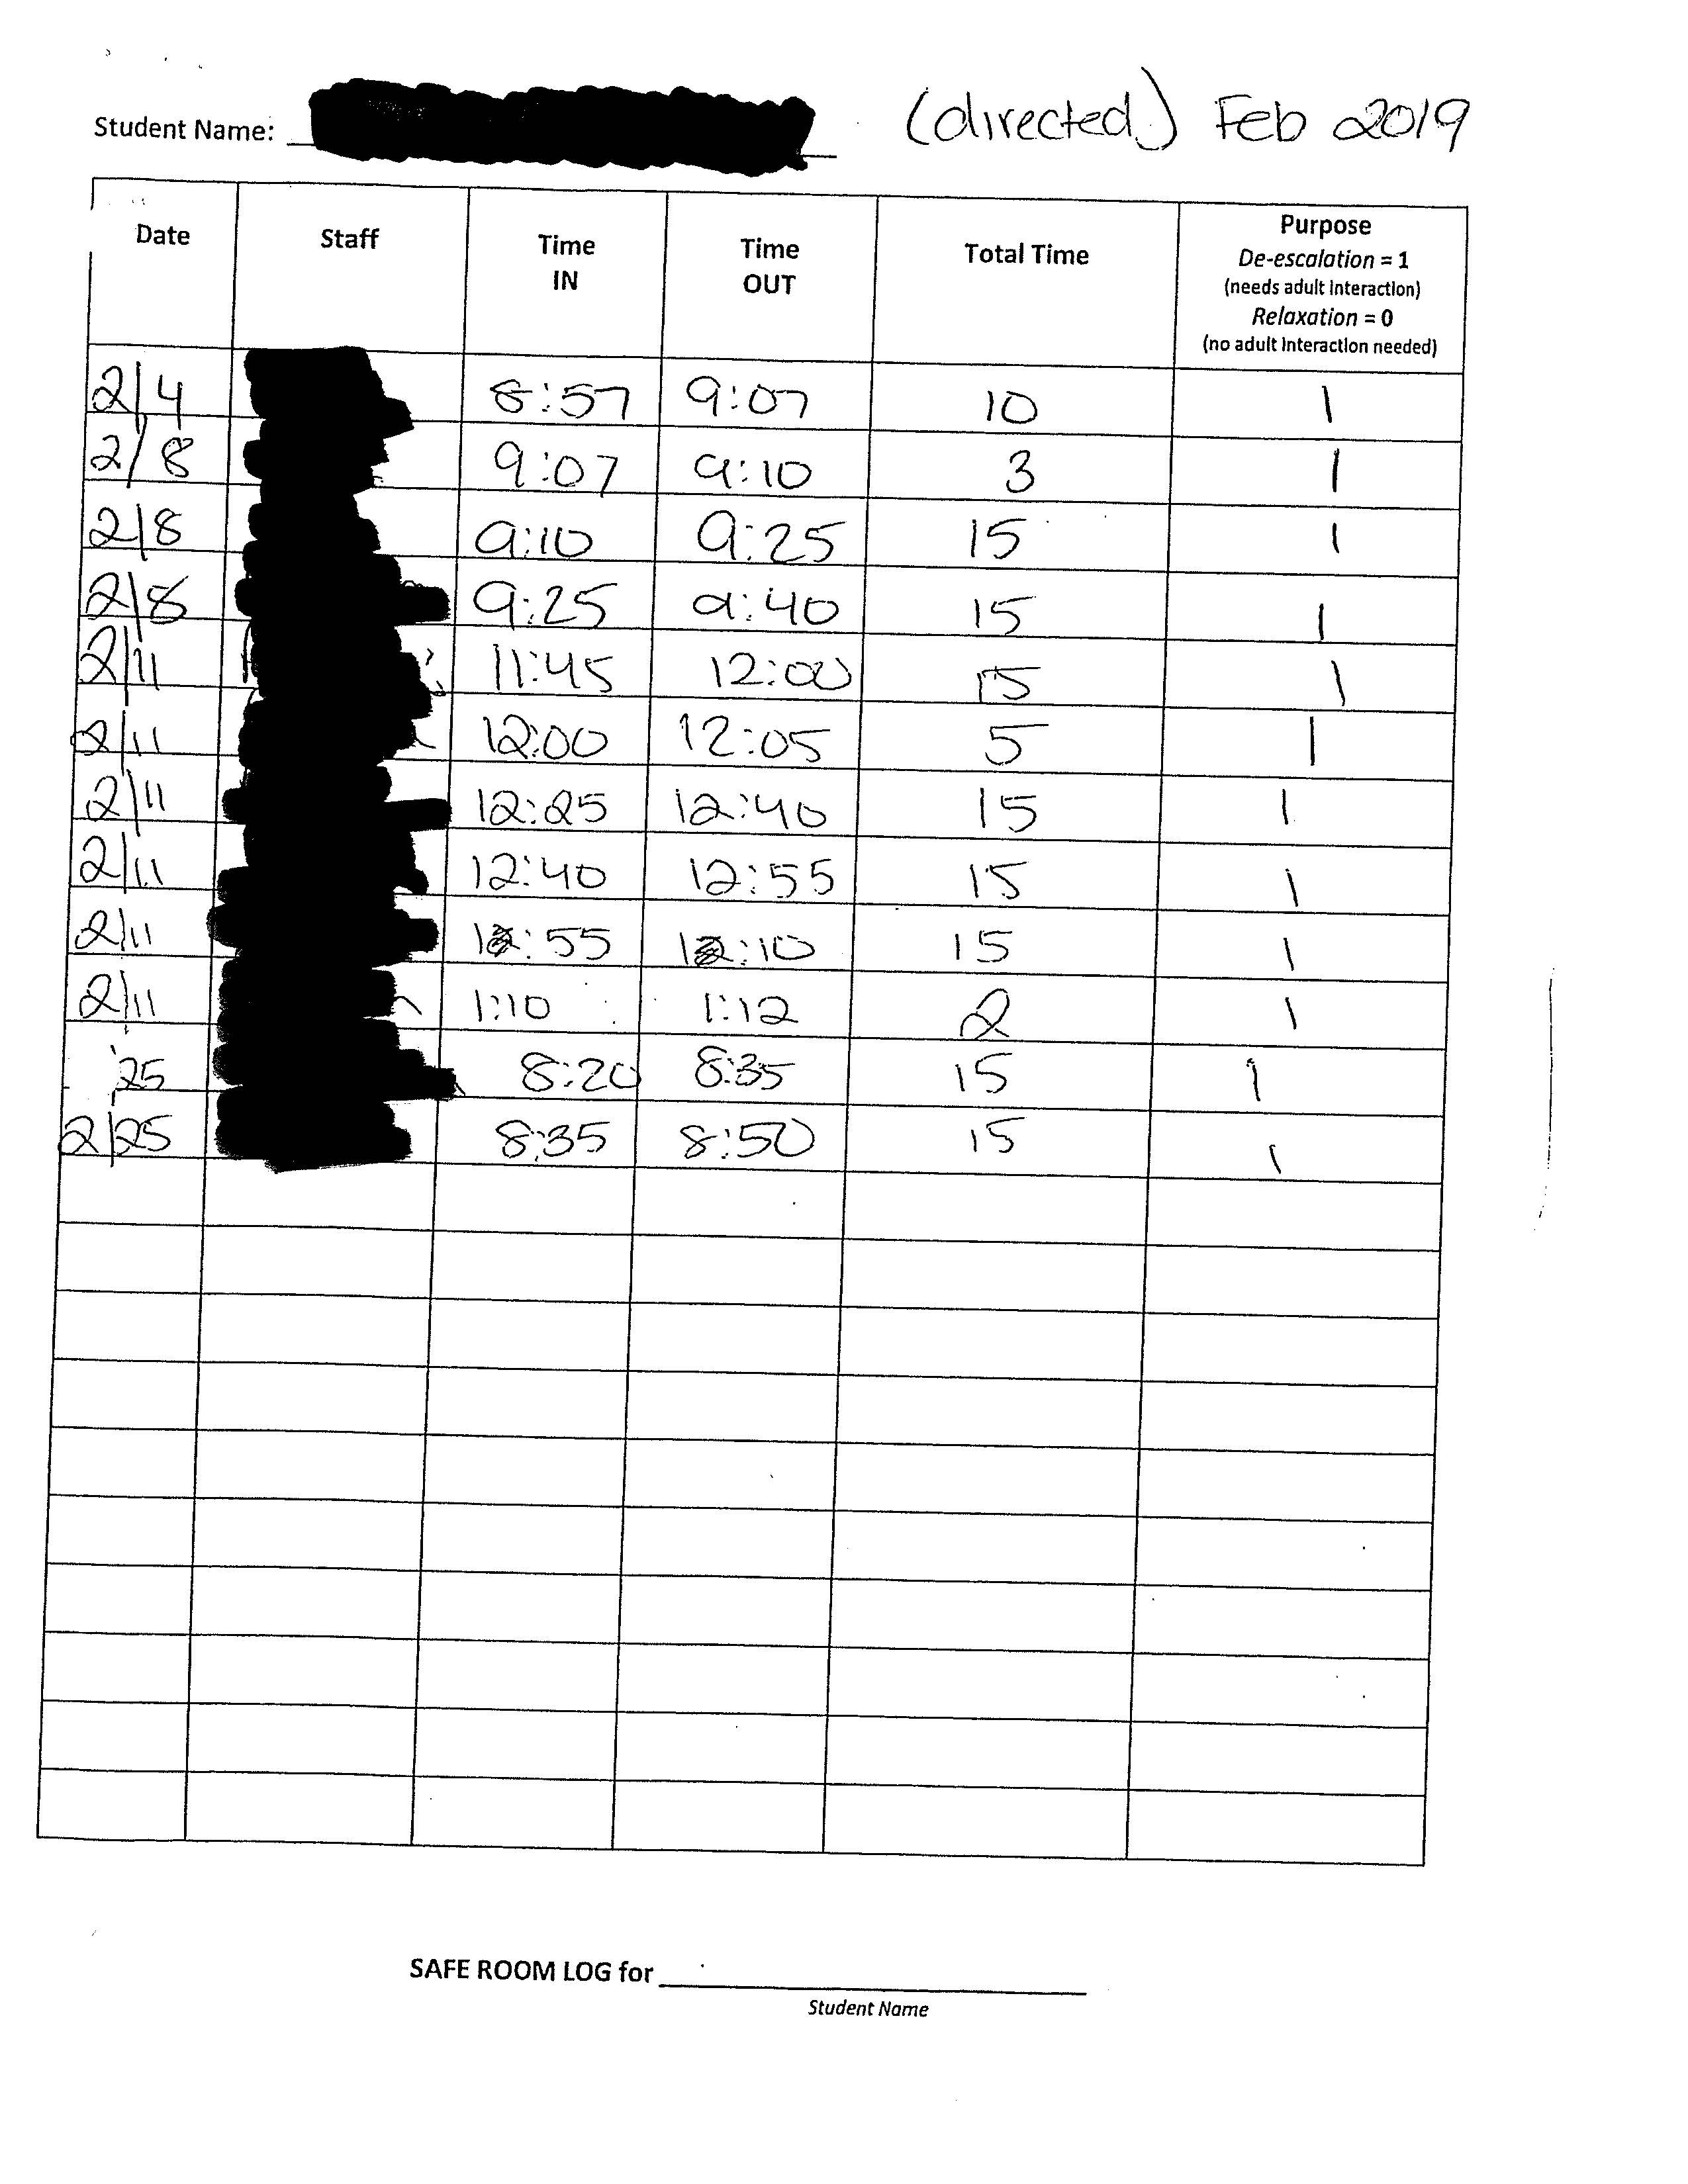 Student Name: (directed) Feb 2019
Date Staff Time IN Time OUT Total Time Purpose
De-escalation = 1
(needs adult interaction)
Relaxation = 0
(no adult interaction needed)
2/4 8:57 9:07 10 1
2/8 9:07 9:10 3 1
2/8 9:10 9:25 15 1
2/8 9:25 9:40 15 1
2/11 11:45 12:00 15 1
2/11 12:00 12:05 5 1
2/11 12:25 12:40 15 1
2/11 12:40 12:55 15 1
2/11 12:55 15 1
2/11 1:10 1:12 2 1
25 8:20 8:35 15 1
2/25 8:35 8:50 15 1
SAFE ROOM LOG for
Student Name